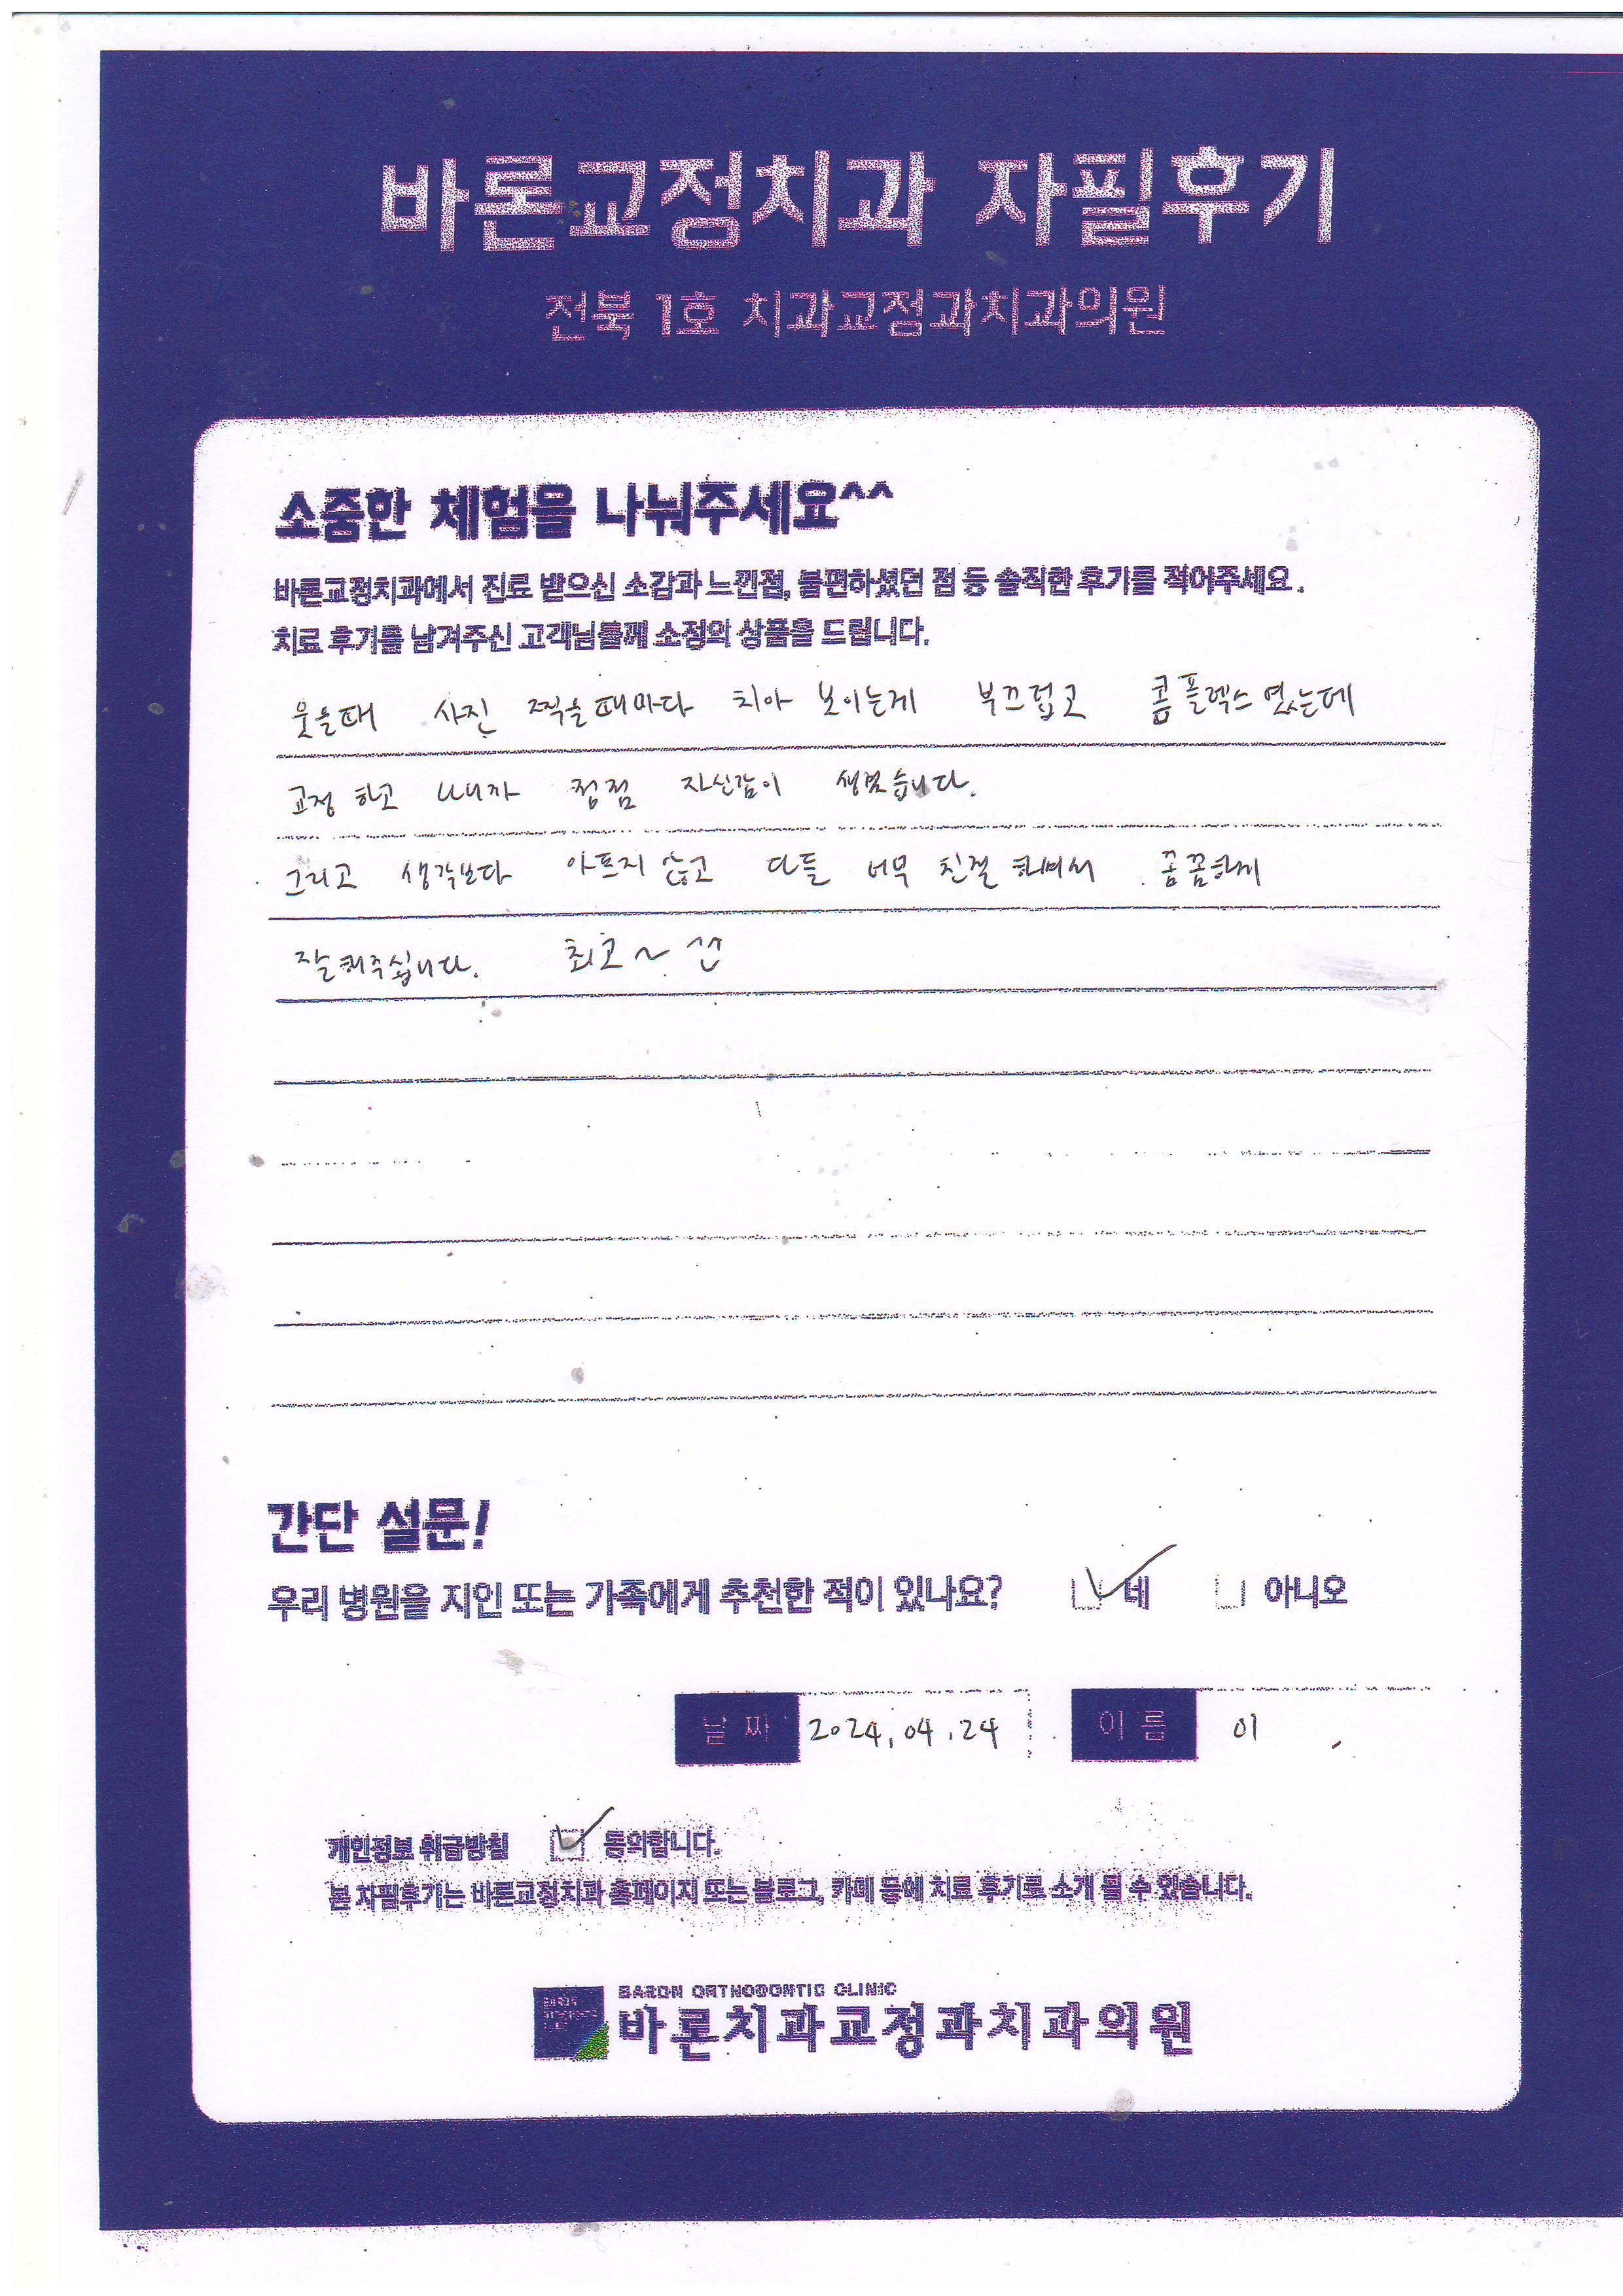 바론교정치과 자필후기
전북 1호 치과교정과치과의원
소중한 체험을 나눠주세요^^
바른교정치과에서 진료 받으신 소감과 느낀점, 불편하셨던 점 등 솔직한 후기를 적어주세요.
치료 후기를 남겨주신 고객님들께 소정의 상품을 드립니다.
웃을때 사진 찍을때마다 치아 보이는게 부끄럽고 콤플렉스였는데
교정하고 나니까 점점 자신감이 생겼습니다.
그리고 생각보다 아프지않고 다들 너무 친절하며서 꼼꼼하게
잘해주십니다. 최고~ ^^
간단 설문!
우리 병원을 지인 또는 가족에게 추천한 적이 있나요? 네 아니오
날 짜 2024.04.24 이 름 이
개인정보 취급방침 동의합니다.
본 자필후기는 바른교정치과 홈페이지 또는 블로그, 카페 등에 치료 후기로 소개 될 수 있습니다.
BARON ORTHODONTIC CLINIC
바론치과교정과치과의원